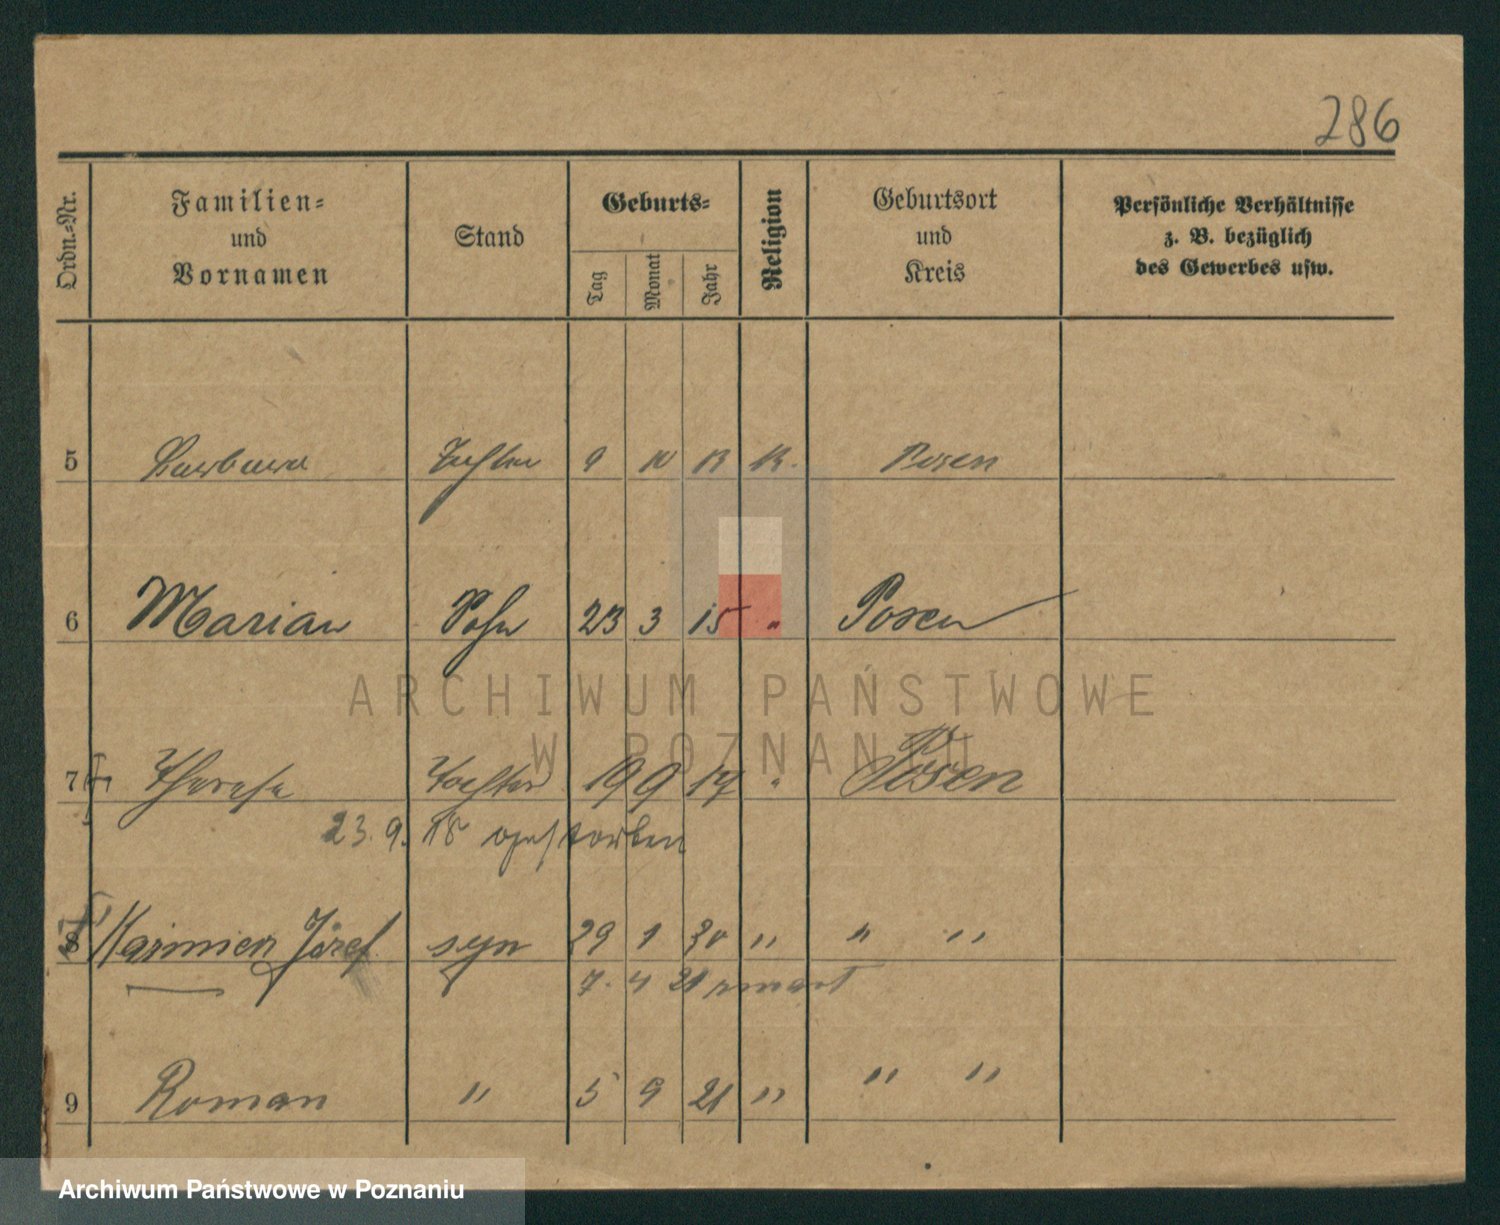 286
Ordn.-Nr.
Familien- und Vornamen
Stand
Geburts-
Tag Monat Jahr
Religion
Geburtsort und Kreis
Persönliche Verhältnisse z. B. bezüglich des Gewerbes usw.
5 Barbara Tochter 9 10 13 K. Posen
6 Marian Sohn 23 3 15 " Posen
7 Therese Tochter 19 9 17 " Posen
23. 9. 18 gestorben
8 Kazimierz Józef syn 29 1 20 " " "
7. 4 21 zmarł
9 Roman " 5 9 21 " " "
ARCHIWUM PAŃSTWOWE
W POZNANIU
Archiwum Państwowe w Poznaniu